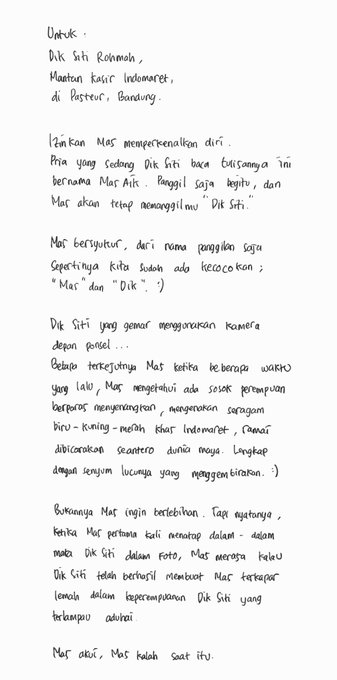 Untuk.
Dik Siti Rohmah,
Mantan kasir Indomaret,
di Pasteur, Bandung.
Izinkan Mas memperkenalkan diri.
Pria yang sedang Dik Siti baca tulisannya ini
bernama Mas Aik. Panggil saja begitu, dan
Mas akan tetap memanggilmu "Dik Siti."
Mas bersyukur, dari nama panggilan saja
sepertinya kita sudah ada kecocokan;
"Mas" dan "Dik". :')
Dik Siti yang gemar menggunakan kamera
depan ponsel...
Betapa terkejutnya Mas ketika beberapa waktu
yang lalu, Mas mengetahui ada sosok perempuan
berparas menyenangkan, mengenakan seragam
biru-kuning-merah khas Indomaret, ramai
dibicarakan seantero dunia maya. Lengkap
dengan senyum lucunya yang menggembirakan. :)
Bukannya Mas ingin berlebihan. Tapi nyatanya,
ketika Mas pertama kali menatap dalam-dalam
mata Dik Siti dalam foto, Mas merasa kalau
Dik Siti telah berhasil membuat Mas terkapar
lemah dalam keperempuanan Dik Siti yang
terlampau aduhai.
Mas akui, Mas kalah saat itu.